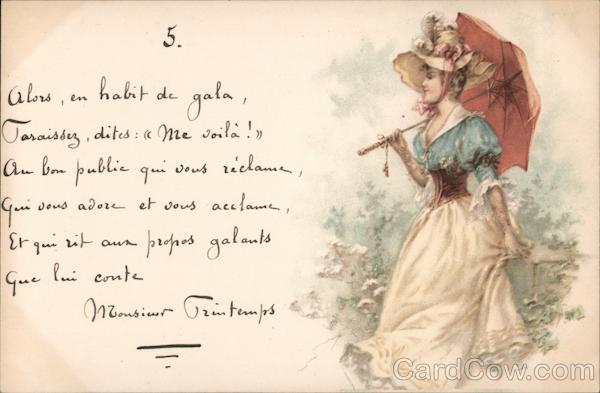 5.
Alors, en habit de gala,
Paraissez, dites : « Me voilà ! »
Au bon public qui vous réclame,
Qui vous adore et vous acclame,
Et qui rit aux propos galants
Que lui conte
Monsieur Printemps
CardCow.com